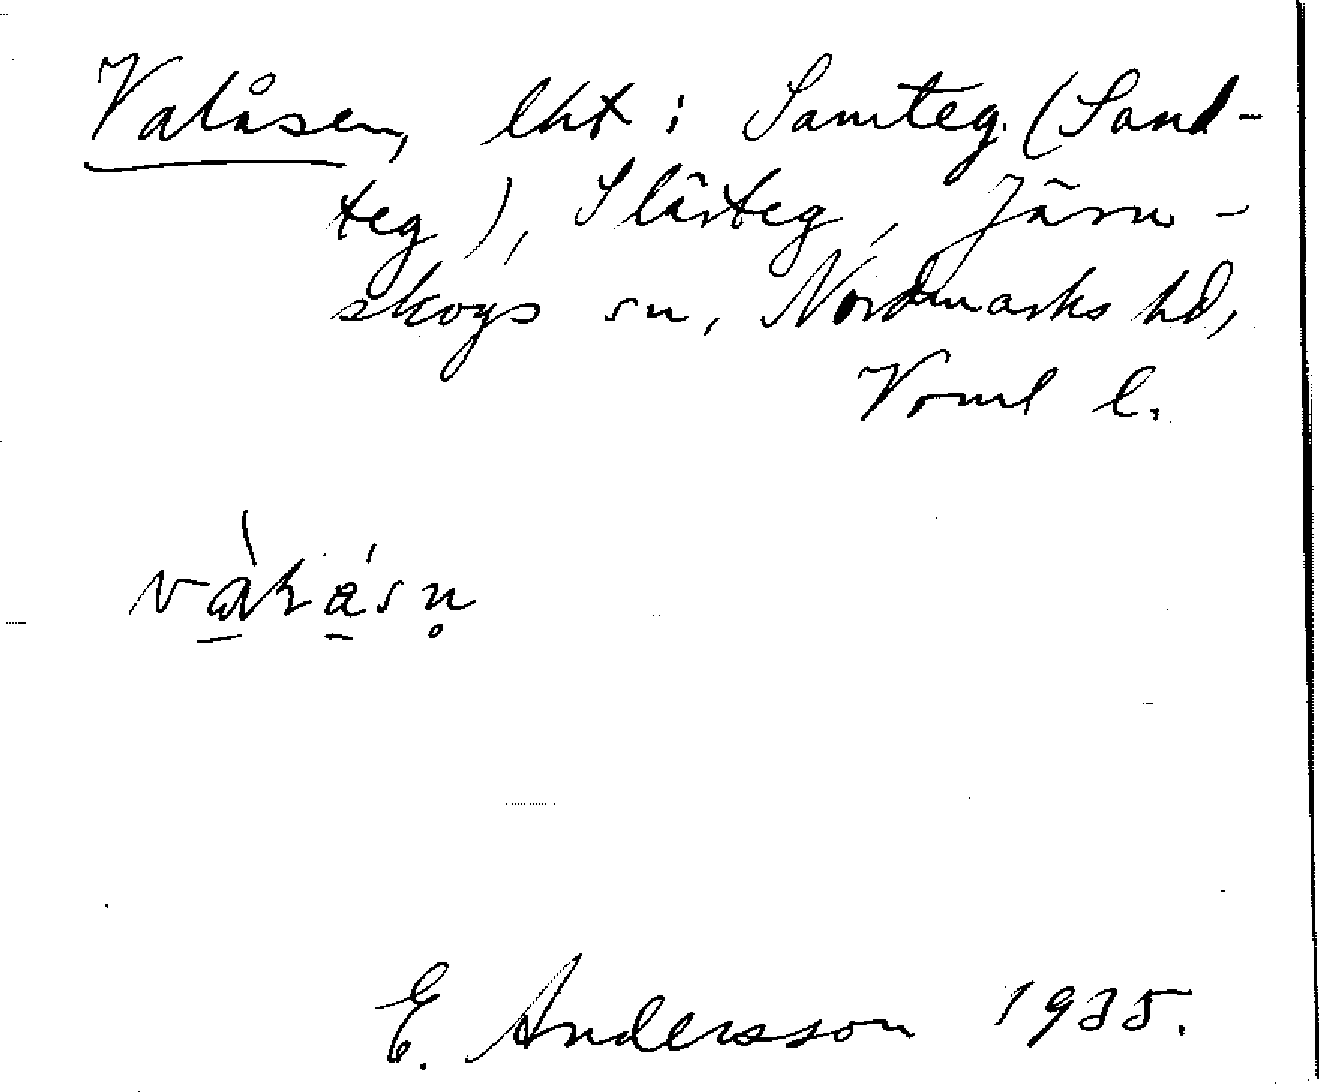 Valåsen, lht i Samteg. (Sand-
teg), Slärteg, Järn-
skogs sn, Nordmarks hd,
Vrml l.
E. Andersson 1935.